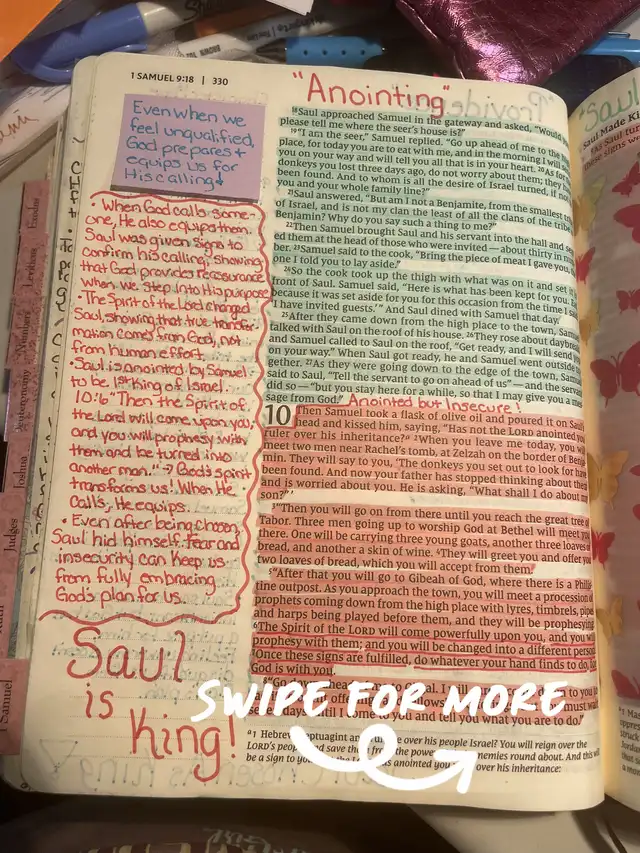 1 SAMUEL 9:18 | 330
"Anointing"
Even when we
feel unqualified,
God prepares +
equips us for
His calling!
• When God calls some-
one, He also equips them.
Saul was given signs to
confirm his calling, showing
that God provides reassurance
when we step into His purpose
• The Spirit of the Lord changed
Saul, showing that true transfor-
mation comes from God, not
from human effort.
• Saul is anointed by Samuel
to be 1st King of Israel.
10:6 "Then the Spirit of
the Lord will come upon you,
and you will prophesy with
them and be turned into
another man." → God's spirit
transforms us! When He
calls, He equips.
• Even after being chosen,
Saul hid himself. Fear and
insecurity can keep us
from fully embracing
God's plan for us.
Saul
is
King!
18 Saul approached Samuel in the gateway and asked, "Would
please tell me where the seer's house is?"
19 "I am the seer," Samuel replied. "Go up ahead of me to the
place, for today you are to eat with me, and in the morning I will
you on your way and will tell you all that is in your heart. 20 As for
donkeys you lost three days ago, do not worry about them; they
been found. And to whom is all the desire of Israel turned, if not
you and your whole family line?"
21 Saul answered, "But am I not a Benjamite, from the smallest
of Israel, and is not my clan the least of all the clans of the tribe
Benjamin? Why do you say such a thing to me?"
22 Then Samuel brought Saul and his servant into the hall and
ed them at the head of those who were invited — about thirty in
ber. 23 Samuel said to the cook, "Bring the piece of meat I gave you,
one I told you to lay aside."
24 So the cook took up the thigh with what was on it and set it
front of Saul. Samuel said, "Here is what has been kept for you. Eat,
because it was set aside for you for this occasion from the time I
'I have invited guests.'" And Saul dined with Samuel that day.
25 After they came down from the high place to the town, Samuel
talked with Saul on the roof of his house. 26 They rose about daybreak,
and Samuel called to Saul on the roof, "Get ready, and I will send
on your way." When Saul got ready, he and Samuel went outside
gether. 27 As they were going down to the edge of the town, Samuel
said to Saul, "Tell the servant to go on ahead of us" — and the servant
did so — "but you stay here for a while, so that I may give you a mes-
sage from God."
Anointed but Insecure!
10 Then Samuel took a flask of olive oil and poured it on Saul's
head and kissed him, saying, "Has not the LORD anointed
ruler over his inheritance? 2 When you leave me today, you
meet two men near Rachel's tomb, at Zelzah on the border of Benja-
min. They will say to you, 'The donkeys you set out to look for have
been found. And now your father has stopped thinking about them
and is worried about you. He is asking, "What shall I do about my
son?"'
3 "Then you will go on from there until you reach the great tree
Tabor. Three men going up to worship God at Bethel will meet you
there. One will be carrying three young goats, another three loaves
bread, and another a skin of wine. 4 They will greet you and offer
two loaves of bread, which you will accept from them.
5 "After that you will go to Gibeah of God, where there is a Philis-
tine outpost. As you approach the town, you will meet a procession
prophets coming down from the high place with lyres, timbrels, pipes
and harps being played before them, and they will be prophesying.
6 The Spirit of the LORD will come powerfully upon you, and you will
prophesy with them; and you will be changed into a different person.
Once these signs are fulfilled, do whatever your hand finds to do, for
God is with you.
SWIPE FOR MORE
you and tell you what you are to do."
Saul
Saul Made King
Exodus
Leviticus
Numbers
Deuteronomy
Joshua
Judges
Ruth
1 Samuel